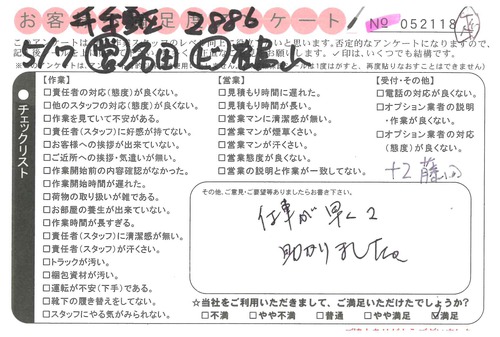 お客 足度 ケート! No 052118
2886
5/7
チェックリスト
【作業】
□責任者の対応(態度)が良くない。
□他のスタッフの対応(態度)が良くない。
□作業を見ていて不安がある。
□責任者(スタッフ)に好感が持てない。
□お客様への挨拶が出来ていない。
□ご近所への挨拶・気遣いが無い。
□作業開始前の内容確認がなかった。
□作業開始時間が遅れた。
□荷物の取り扱いが雑である。
□お部屋の養生が出来ていない。
□作業時間が長すぎる。
□責任者(スタッフ)に清潔感が無い。
□責任者(スタッフ)が汗くさい。
□トラックが汚い。
□梱包資材が汚い。
□運転が不安(下手)である。
□靴下の履き替えをしてない。
□スタッフにやる気がみられない。
【営業】
□見積もり時間に遅れた。
□見積もり時間が長い。
□営業マンに清潔感が無い。
□営業マンが煙草くさい。
□営業マンが汗くさい。
□営業態度が良くない。
□営業の説明と作業が一致してない。
【受付・その他】
□電話の対応が良くない。
□オプション業者の説明
・作業が良くない。
□オプション業者の対応
(態度)が良くない。
その他、ご意見・ご要望等ありましたらお書き下さい。
仕事が早くて
助かりました。
☆当社をご利用いただきまして、ご満足いただけたでしょうか?
□不満 □やや不満 □普通 □やや満足 ☑満足